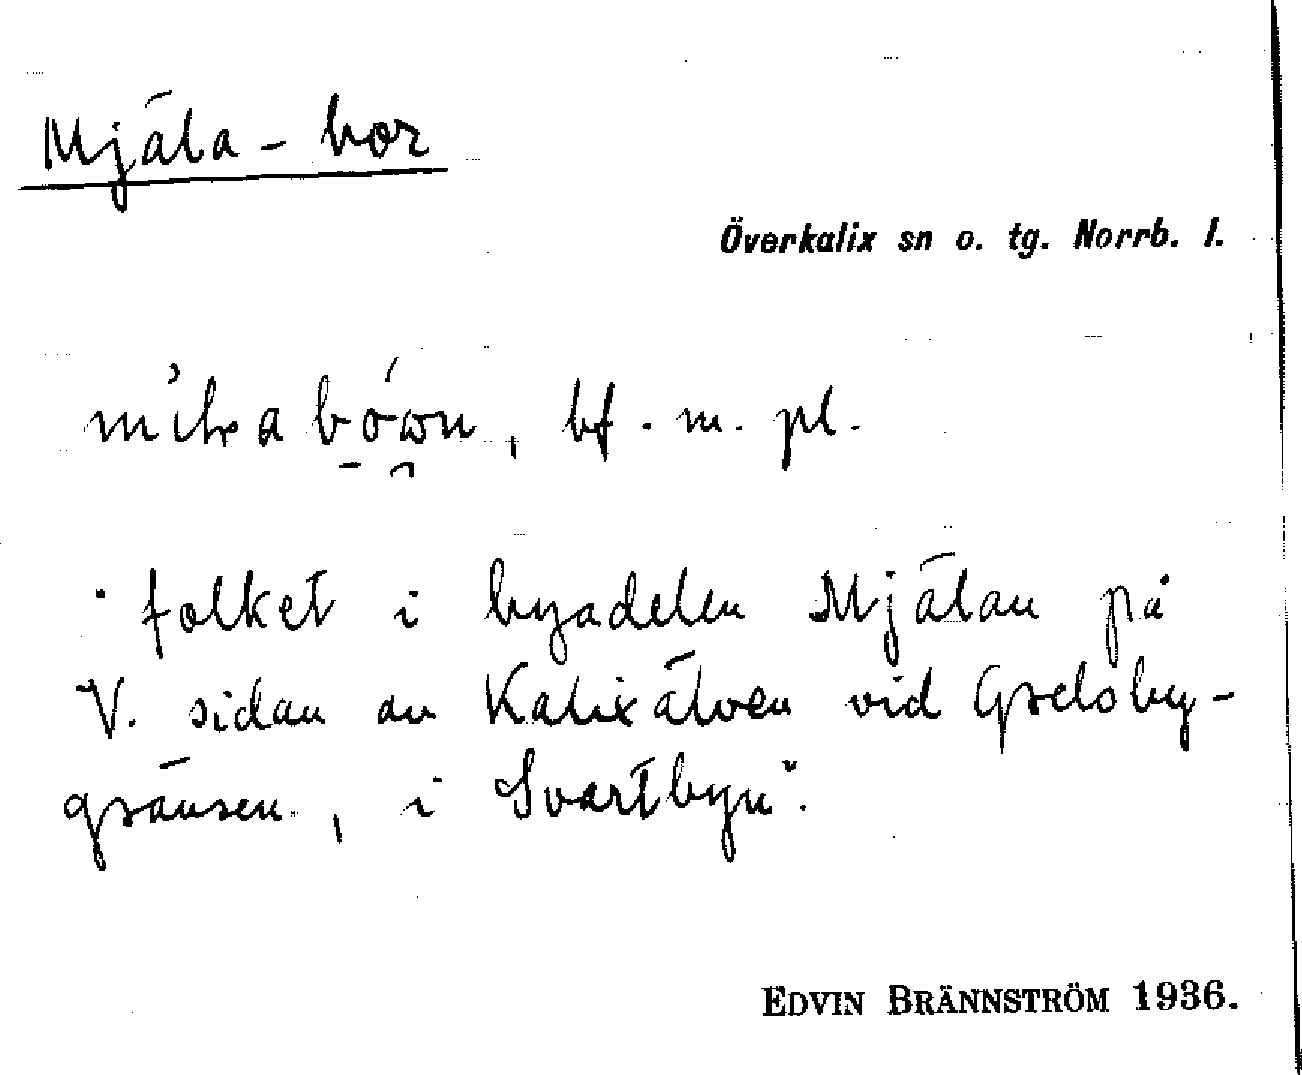 Mjäla-bor
Överkalix sn o. tg. Norrb. l.
bf. m. pl.
"folket i byadelen Mjälan på
V. sidan av Kalixälven vid Grelsby-
gränsen, i Svartbyn".
EDVIN BRÄNNSTRÖM 1936.